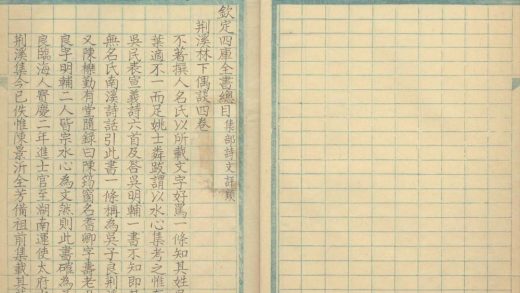 欽定四庫全書總目集部詩文評類
荆溪林下偶談四卷
不著撰人名氏以所載文字好罵一條知其姓吳
葉適不一而足姚士粦跋謂以水心集考之惟有
吳氏表宣義詩六首及荅吳明輔一書不知即其
無名氏南溪詩話引此書一條稱為吳子良荆溪
又陳櫟勤有堂隨録曰陳筠窗名耆卿字壽老
良字明輔二人皆宗水心為文然則此書確為
良臨海人寳慶二年進士官至湖南運使太府
荆溪集今已佚惟陳景沂全芳備祖前集載其